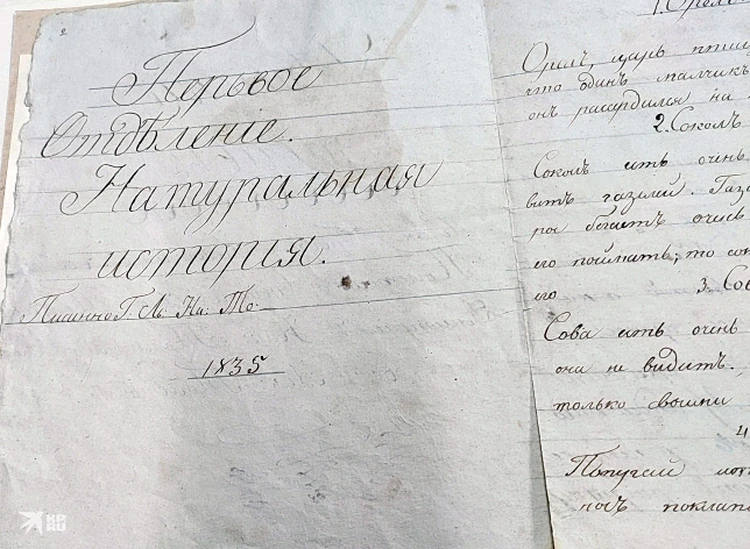 2
Перьвое
Отдѣленіе.
Натуральная
исторія.
Писанно Г. Ль: На: То:
1835
1. Орелъ
Орелъ, царь птицъ
что одинъ малчикъ
онъ разсердился на
2. Соколъ
Соколъ есть очень
витъ газелей. Газе
рое бегаетъ очень
его поймать; то сок
его 3. Сов
Сова есть очень
она не видитъ.
только своими
4
Попугай мож
носъ поклап
KP.RU